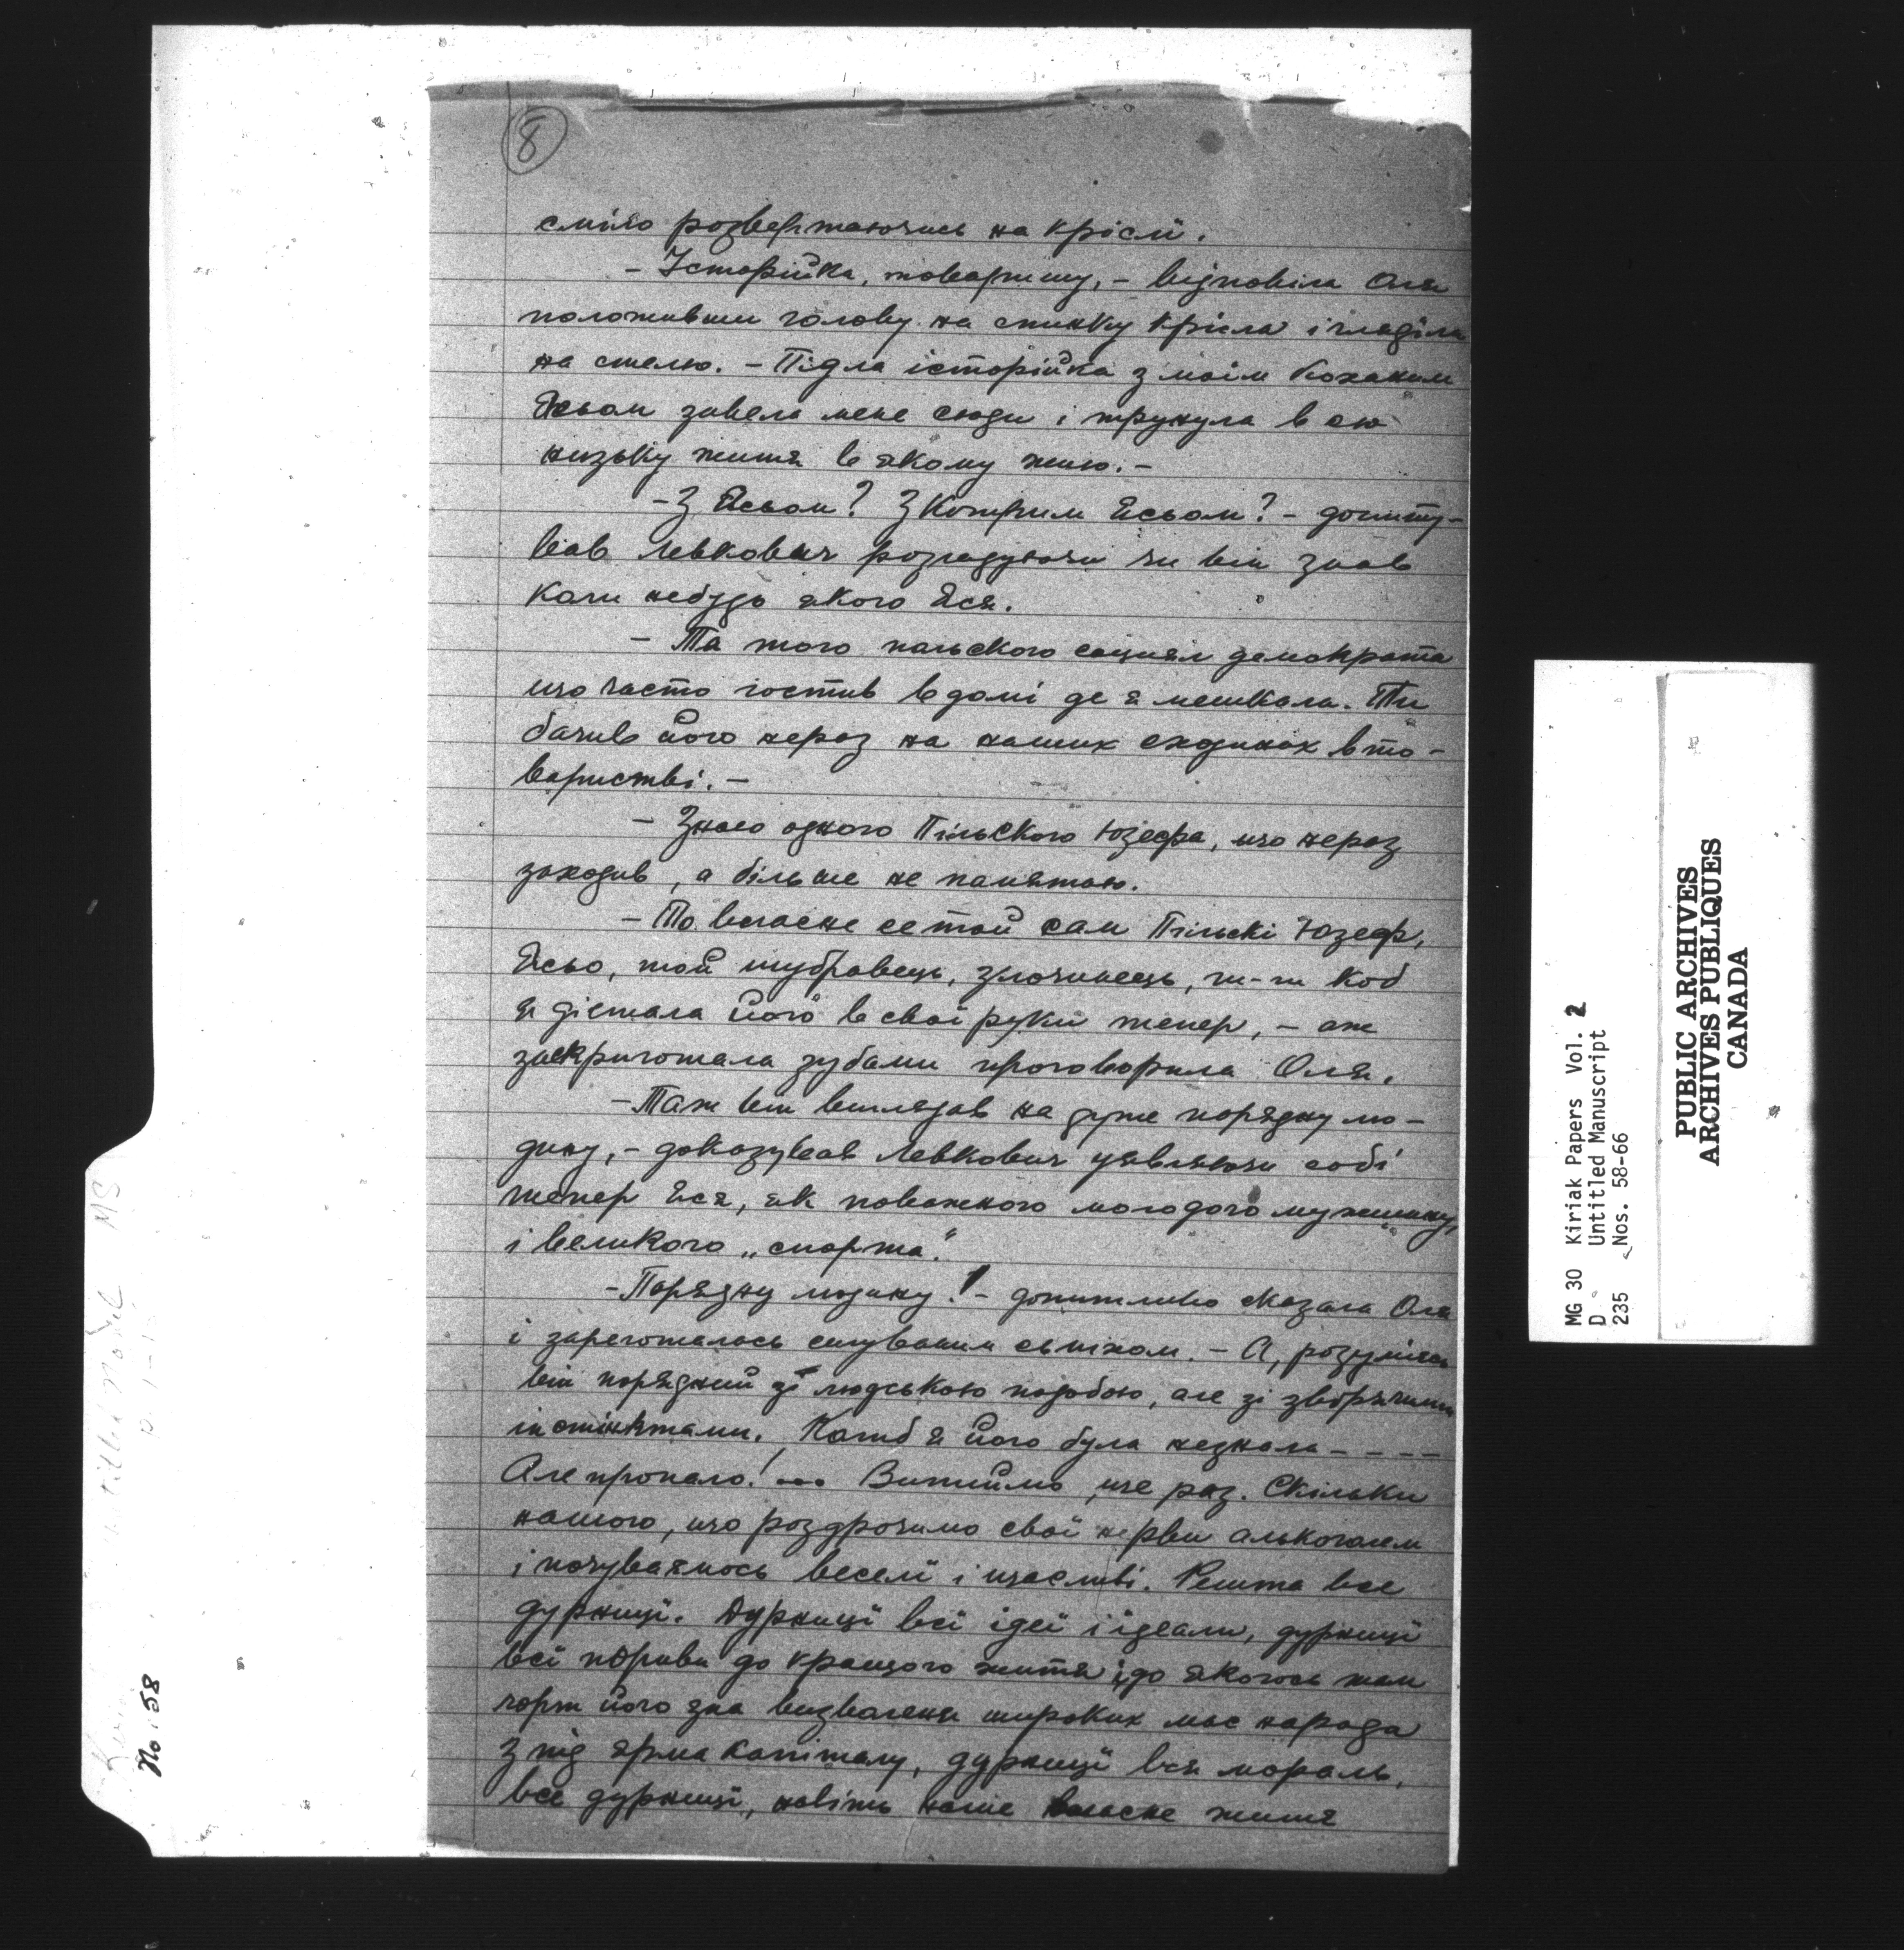 8
сміло розвертаючись на кріслї.
– Історійка, товаришу, – відповіла Оля
положивши голову на спинку крісла і гляділа
на стелю. – Підла історійка з моїм коханим
Ясьом завела мене сюди і трунула в сю
низьку життя в якому жию. –
– З Ясьом? З Котрим Ясьом? – допиту-
вав Левкович розгадуючи чи він знав
коли небудь якого Яся.
– Та того польского социял демократа
що часто гостив в домі де я мешкала. Ти
бачив його нераз на наших сходинах в то-
вористві. –
– Знаю одного Пільского Юзефа, що нераз
заходив, а більше не памятаю.
– То власне се той сам Пільскі Юзеф,
Ясьо, той шубравець, злочинець, чи-чи коб
я дістала його в свої руки тепер, – аж
заскриготала зубами проговорила Оля.
– Таж він виглядав на дуже порядну лю-
дину, – доказував Левкович уявляючи собі
тепер Яся, як поважного молодого мужчину,
і великого „спорта".
– Порядну людину! – допитливо сказала Оля
і зареготалась силуваним сьміхом. – А, розумієсь
він порядний зі людською подобою, але зі звірячими
інстінктами. Колиб я його була незнала – – – –
Але пропало! ... Випиймо ще раз. Скільки
нашого, що роздрочимо свої нерви алькоголем
і почуваємось веселї і щасливі. Решта все
дурницї. Дурницї всі ідеї і ідеали, дурницї
всі пориви до кращого життя і до якогось там
чорт його зна визволеня широких мас народа
з під ярма капіталу, дурницї вся мораль,
все дурницї, навіть наше власне життя
No. 58
MG 30 Kiriak Papers Vol. 2
D Untitled Manuscript
235 Nos. 58-66
PUBLIC ARCHIVES
ARCHIVES PUBLIQUES
CANADA